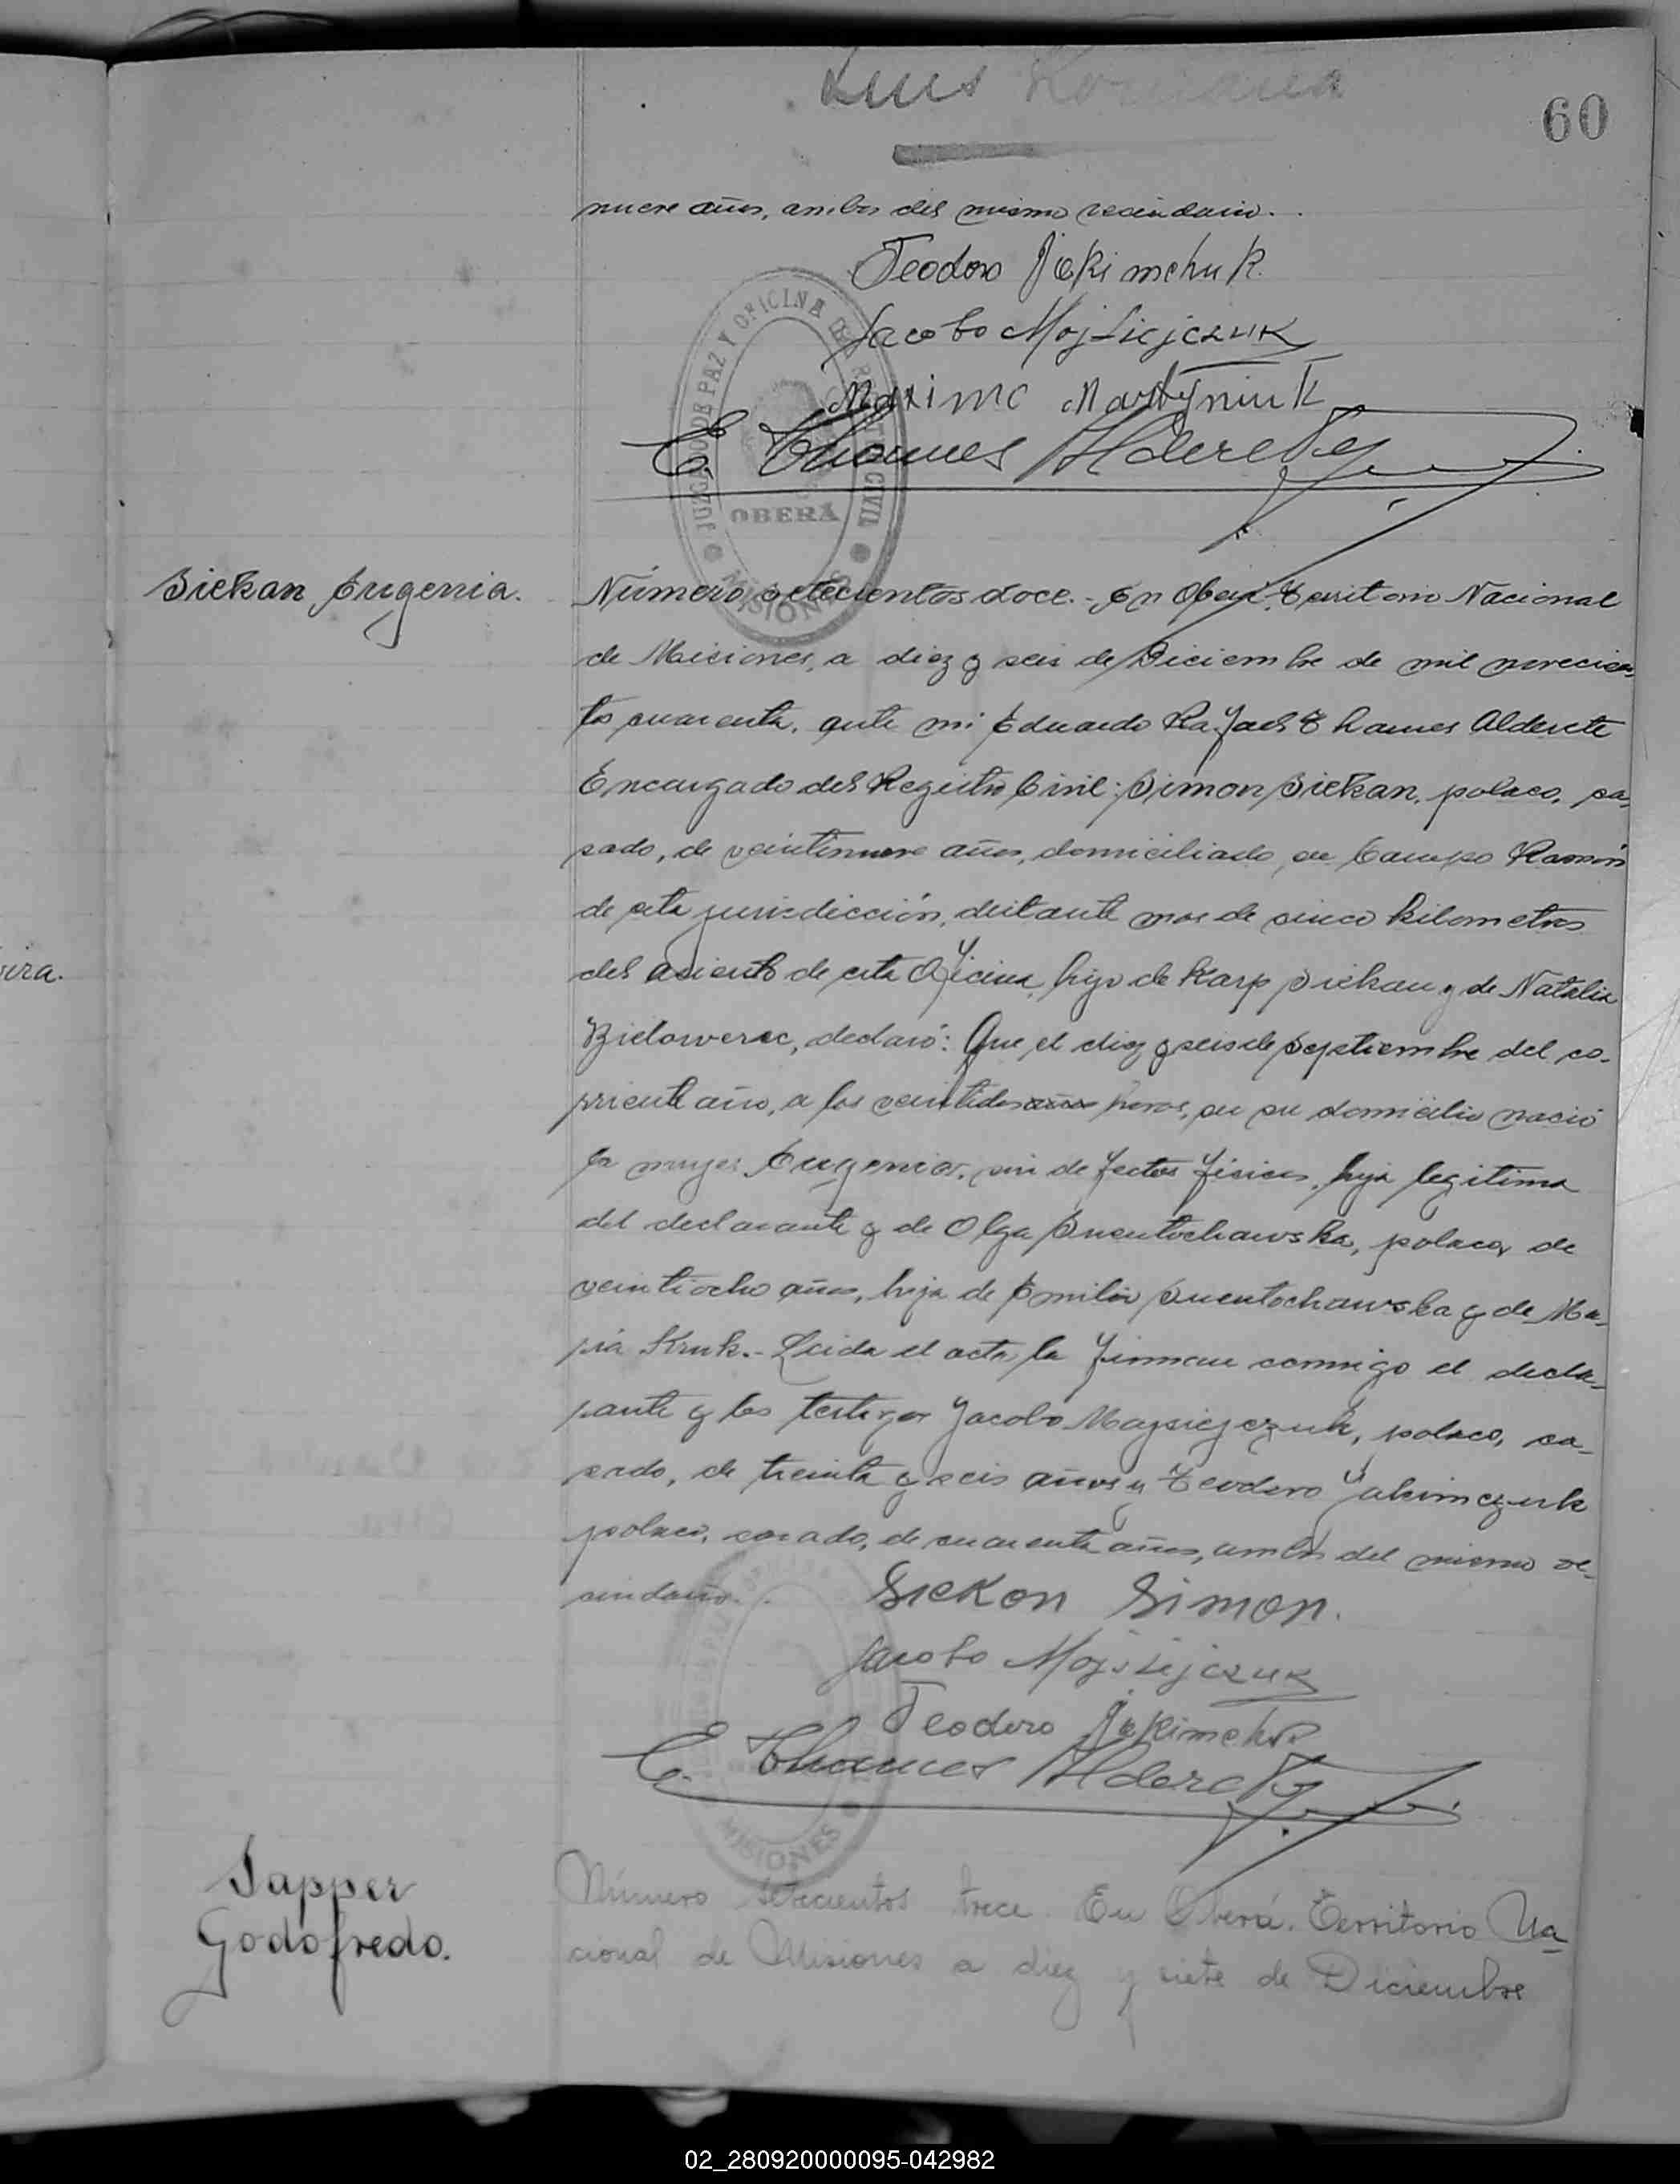 Luis Romana
60
nueve años, ambos del mismo vecindario.
Teodoro Jakimchuk.
Jacobo Mojsiejczuk
Maximo Martyniuk
E. Thames Alderete
JUZGADO DE PAZ Y OFICINA DEL REGISTRO CIVIL
OBERÁ
MISIONES
Siekan Eugenia.
Número setecientos doce.- En Oberá, Territorio Nacional
de Misiones, a diez y seis de Diciembre de mil novecien-
tos cuarenta, ante mi Eduardo Rafael Thames Alderete
Encargado del Registro Civil: Simon Siekan, polaco, ca-
sado, de veintinueve años, domiciliado en Campo Ramón
de esta jurisdicción, distante mas de cinco kilometros
del asiento de esta Oficina, hijo de Karp Siekan y de Natalia
Bielowerec, declaró: Que el diez y seis de Septiembre del co-
rriente año, a las veintidos años horas, en su domicilio nació
la mujer Eugenia, sin defectos físicos, hija legitima
del declarante y de Olga Suentochawska, polaca, de
veintiocho años, hija de Emilio Suentochawska y de Ma-
ria Kruk.- Leida el acta la firman conmigo el decla-
rante y los testigos Jacobo Majsiejczuk, polaco, ca-
sado, de treinta y seis años y Teodoro Yakimczuk
polaco, casado, de cuarenta años, ambos del mismo ve-
cindario.
Siekon Simon.
Jacobo Mojsiejczuk
Teodoro Jakimchuk
E. Thames Alderete
MISIONES
Sapper
Godofredo.
Número setecientos trece. En Oberá, Territorio Na-
cional de Misiones a diez y siete de Diciembre
02_280920000095-042982